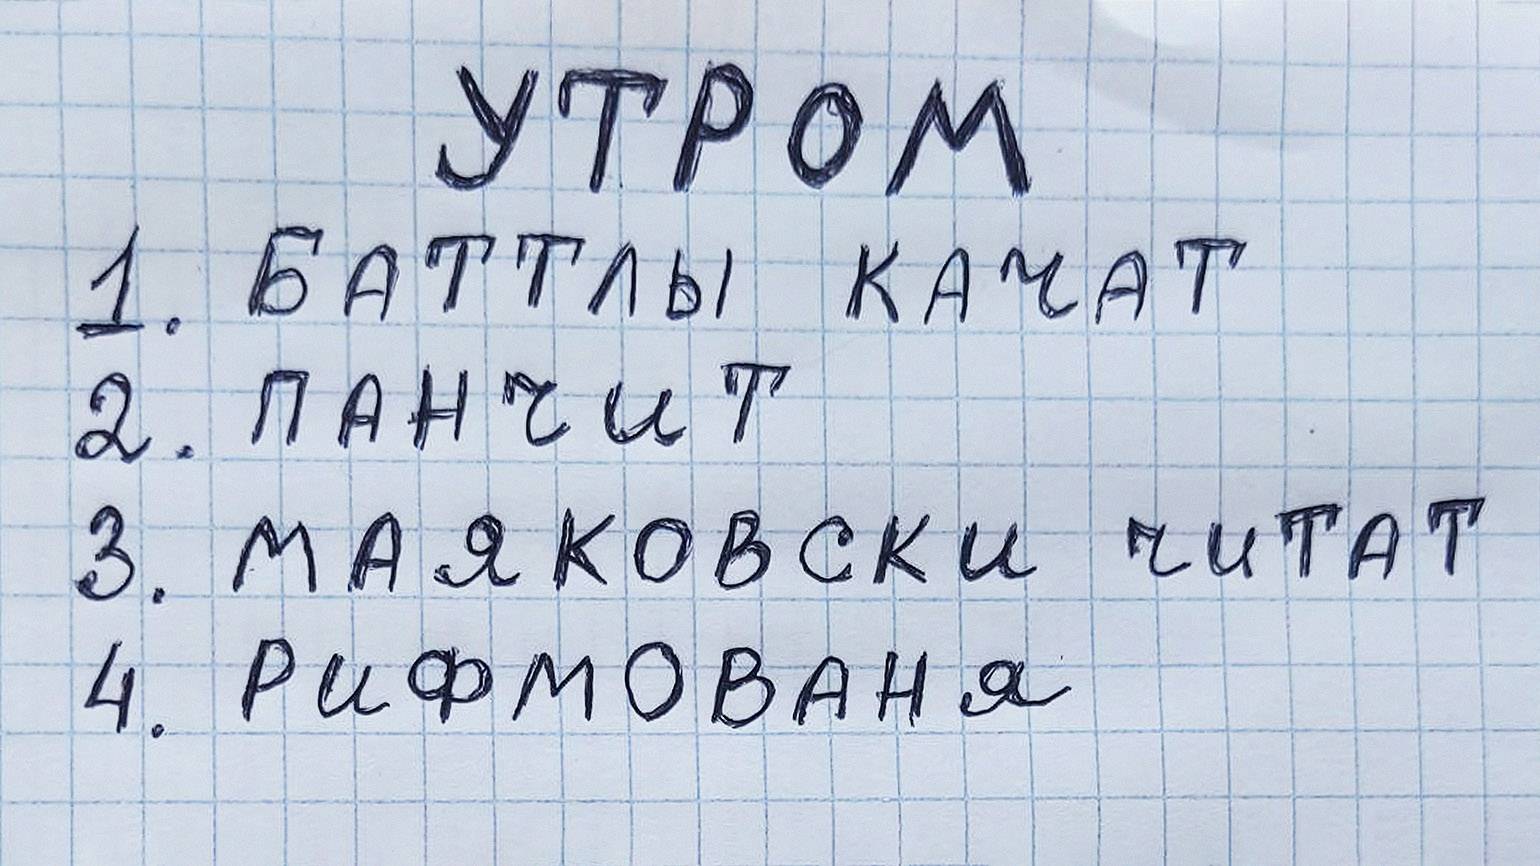 УТРОМ
1. БАТТЛЫ КАЧАТ
2. ПАНЧИТ
3. МАЯКОВСКИ ЧИТАТ
4. РИФМОВАНЯ